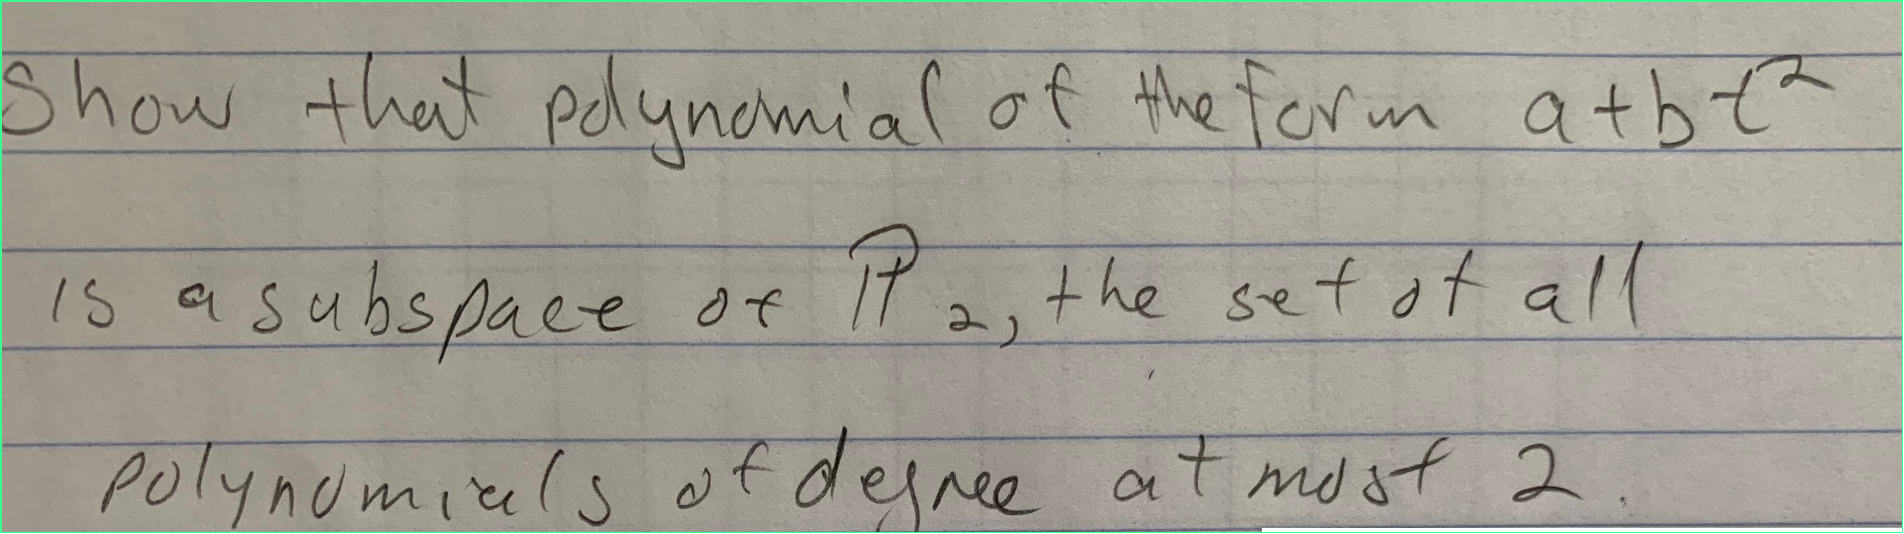 Show that polynomial of the form a+bt²
is a subspace of ℙ₂, the set of all
polynomials of degree at most 2.